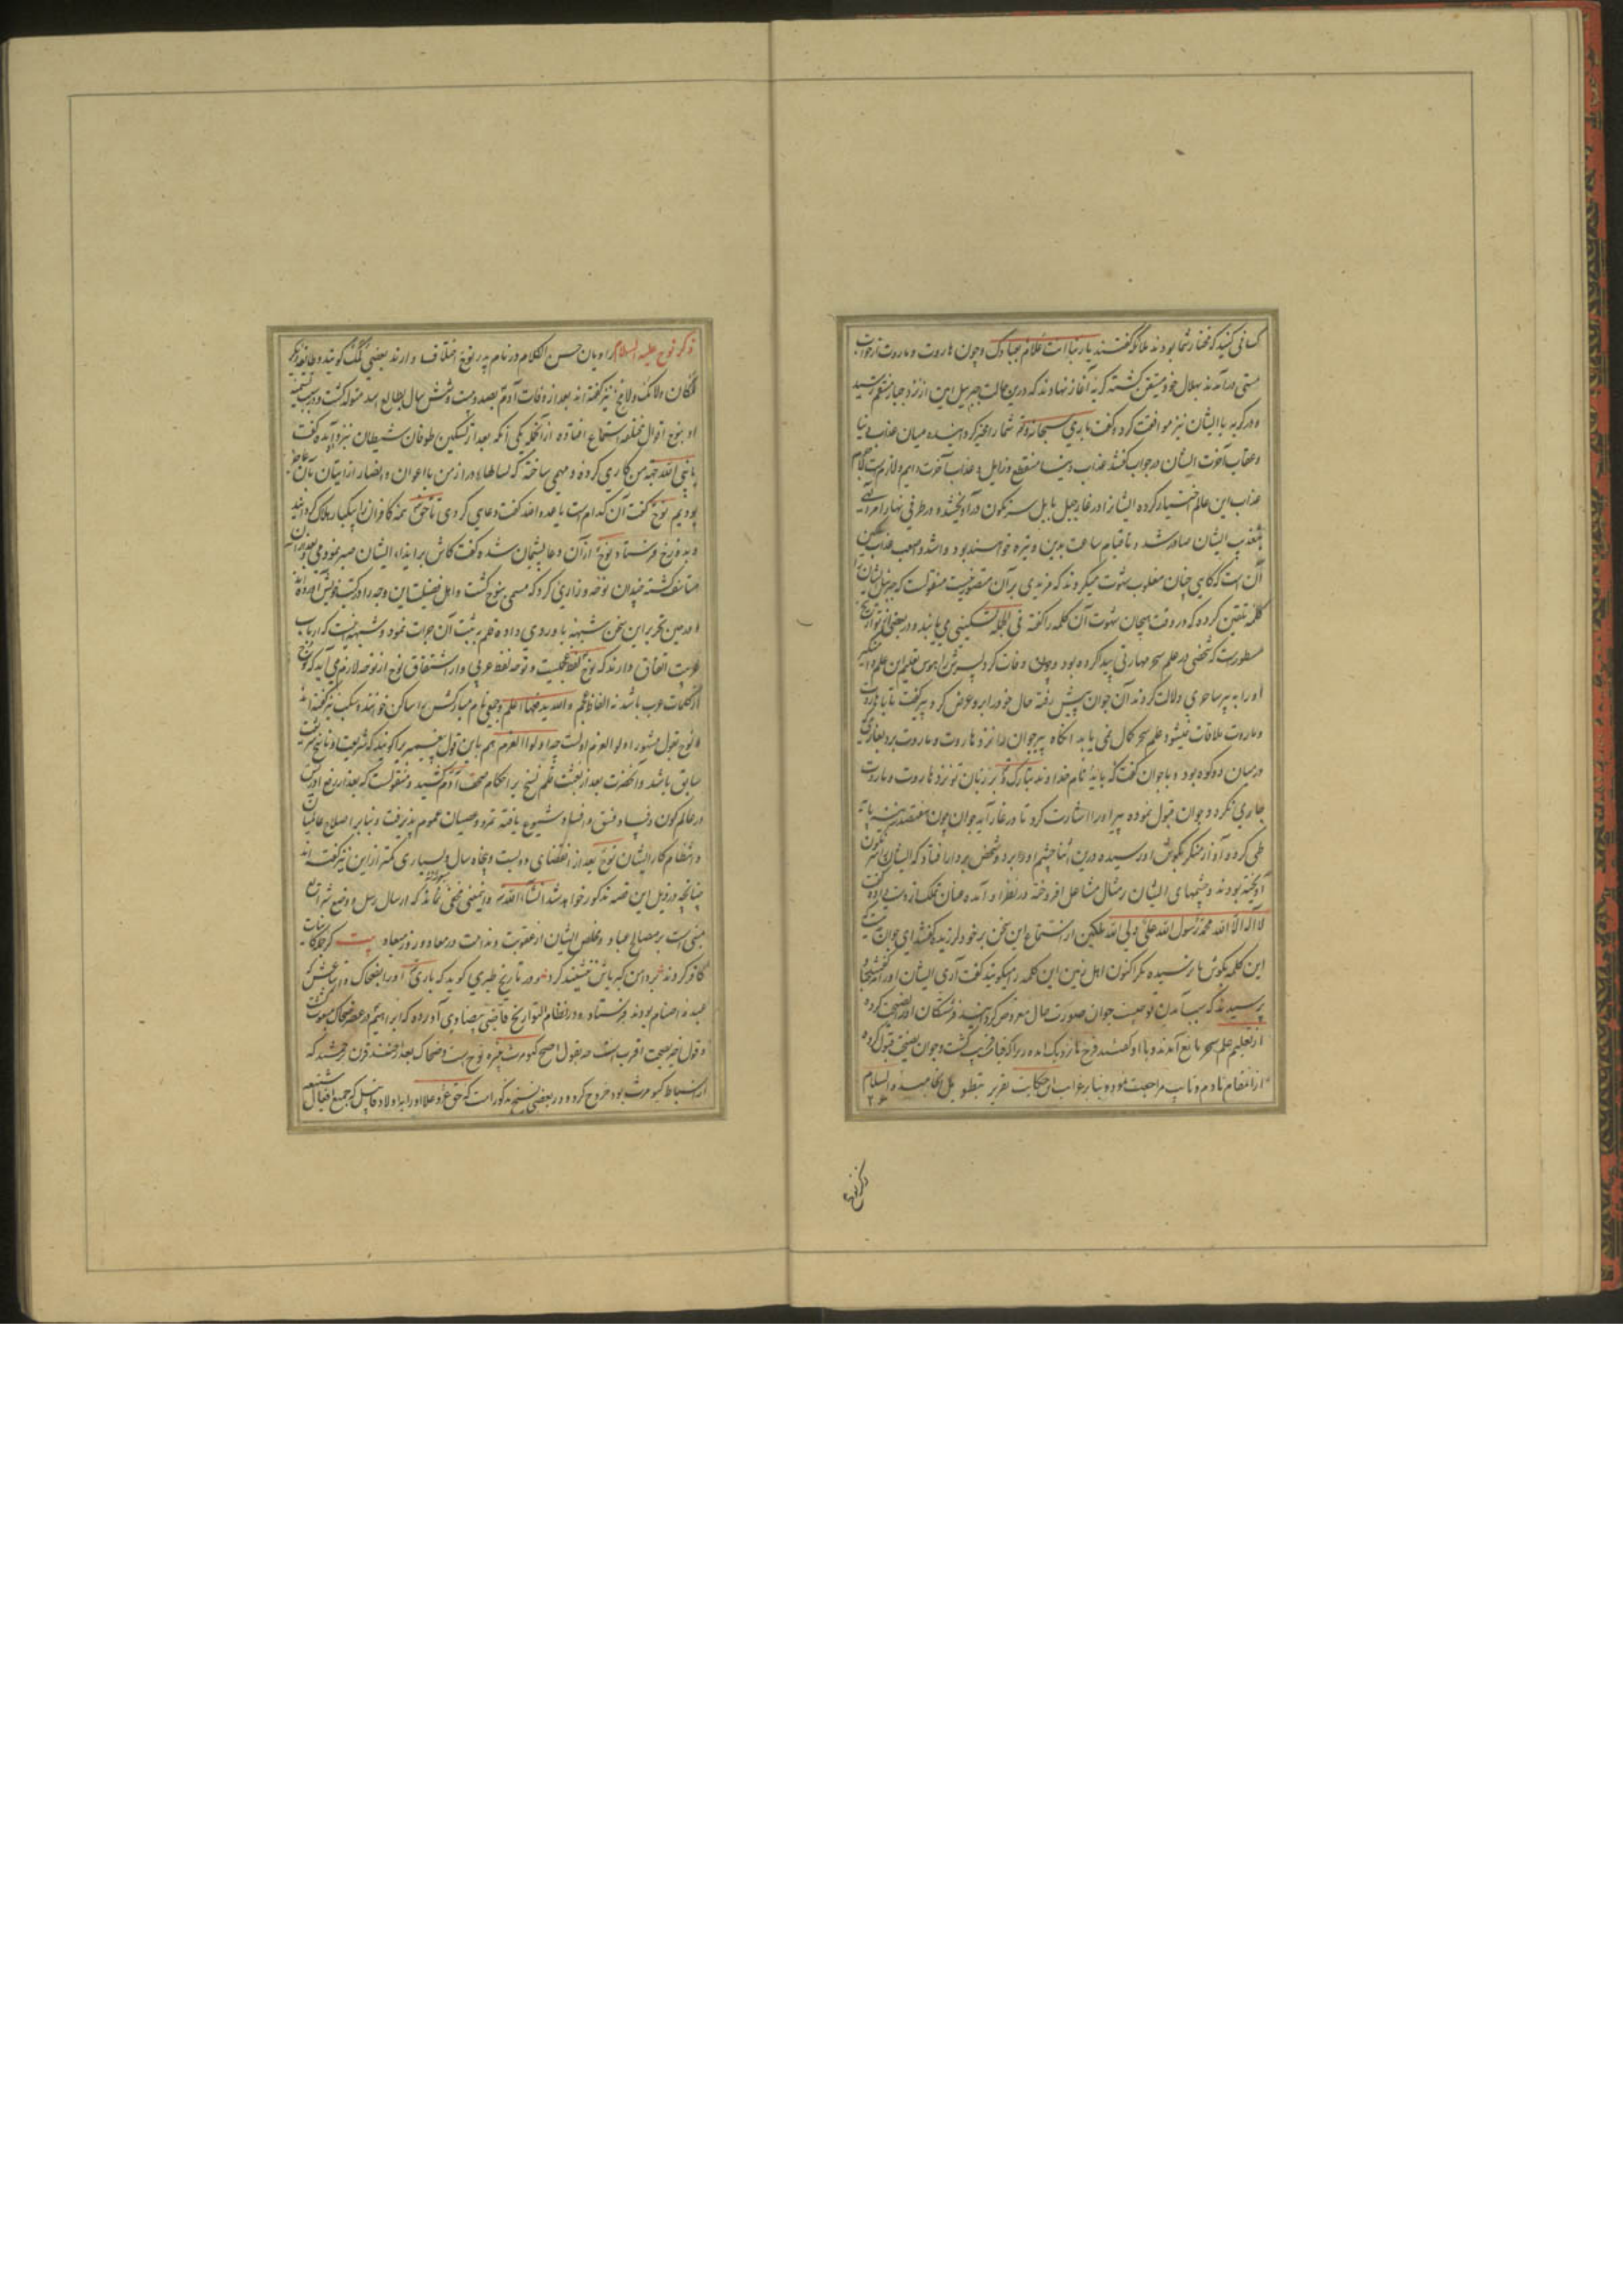 کسانی کنید که مختار شما بودند ملائکه گفتند یا ربنا انت علام بعبادک و چون هاروت و ماروت از خواب
مستی درآمدند بهلال خود متیقن کشته کریه آغاز نهادند که درین حالت جبرییل امین از نزد جبار منتقم رسید
و در کریه با ایشان نیز موافقت کرد و گفت باری سبحانه و تع شما را مخیر کردانیده میان عذاب دنیا
و عقاب آخرت ایشان در جواب گفتند عذاب دنیا منقطع و زایل و عذاب آخرت دایم و لازم است
عذاب این عالم اختیار کرده ایشانرا در غار جبل بابل سرنکون درآویختند و در طرفی نهار امر الهی
بتعذیب ایشان صادر شد و تا قیام ساعت بدین وتیره خواهند بود و اشد و اصعب عذاب
آن است که کاهی چنان مغلوب شهوت میکردند که مزیدی بر آن متصور نیست منقولست که جبرییل ایشانرا
کلمه تلقین کرده که در وقت هیجان شهوت آن کلمه را گفته فی الجمله تسکینی می یابند و در بعضی از تواریخ
مسطورست که شخصی در علم سحر مهارتی پیدا کرده بود و چون وفات کرد پسرش را هوس تعلیم این علم
او را به پیر ساحری دلالت کردند آن جوان پیش رفته حال خود را بر وعرض کرد پیر گفت تا با هاروت
و ماروت ملاقات نمیشود علم سحر کمال نمی یابد آنکاه پیر جوان را نزد هاروت و ماروت برد بغاری که
در میان دو کوه بود و با جوان گفت که باید نام خداوند تبارک و تع بر زبان تو نزد هاروت و ماروت
جاری نکردد و جوان قبول نموده پیر او را اشارت کرد تا در غار آید جوان چون هفتصد پایه
طی کرد آواز منکر بگوش او رسیده درین اثنا چشم او بر دو شخص افتاد که ایشان سرنکون
آویخته بودند و چشمهای ایشان بر مثال مشاعل افروخته در نظر او آمده عنان تملک از دست داده گفت
لا اله الا الله محمد رسول الله علی ولی الله ملکین از استماع این سخن بر خود لرزیده گفتند ای جوان
این کلمه بگوش ما نرسیده مگر اکنون اهل زمین این کلمه را میگویند گفت آری ایشان او را
پرسیدند که سبب آمدن تو چیست جوان صورت حال معروض کردانید فرشتگان او را نصیحت کرده
از تعلیم علم سحر مانع آمدند و با او گفتند فرج ما نزدیک آمده زیرا که قیامت قریب گشت و جوان نصیحت قبول کرده
از انتقام نادم و تایب مراجعت نمود و بنابر غرابت این حکایت تقریر بتطویل انجامید والسلام
۲۶
ذکر نوح
ذکر نوح علیه السلام راویان حسن الکلام در نام پدر نوح اختلاف دارند بعضی لمک گویند و طایفه دیگر
لمکان و لامک و لامخ نیز گفته اند بعد از وفات آدم بصد و بیست و شش سال بطالع اسد متولد گشت و در سبب تسمیه
او بنوح اقوال مختلفه استماع افتاده از آنجمله یکی آنکه بعد از تسکین طوفان شیطان نزد او آمده گفت
یا نبی الله جهت من کاری کرده و مهمی ساخته که سالهای دراز من با اعوان و انصار از اتیان بآن عاجز
بودیم نوح گفت آن کدام است یا عدو الله گفت دعایی کردی تا حق تع همه کافران را بیکبار هلاک کردانید
و بدوزخ فرستاد نوح از آن دعا پشیمان شده گفت کاش بر ایذاء ایشان صبر نمودمی و بعد از آن
متاسف گشته چندان نوحه و زاری کرد که مسمی بنوح گشت و اهل فضیلت این وجه را در کتب خویش آورده اند
و در حین تحریر این سخن شبهه باو روی داده قلم به ثبت آن جرات نمود و شبهه نیست که ارباب
عربیت اتفاق دارند که نوح لفظ عجمیست و نوحه لفظ عربی و از اشتقاق نوح از نوحه لازم می آید که نوح
از کلمات عرب باشد نه الفاظ عجم والله یدفعها اعلم و جمعی نام مبارکش را ساکن خوانند و سکب نیز گفته اند
و نوح بقول مشهور اولو العزم اولست چه اولوا العزم هم باین قول پیغمبریرا گویند که شریعت او ناسخ شریعت
سابق باشد و آنحضرت بعد از بعثت قلم نسخ بر احکام صحف آدم کشید و منقولست که بعد از رفع ادریس
در عالم کون و فساد فسق و فساد شیوع یافته تمرد و عصیان عموم پذیرفت و بنابر اصلاح عالمیان
و انتظام کار ایشان نوح بعد از انقضای دویست و پنجاه سال و بسیاری کمتر از این نیز گفته اند
چنانچه در ذیل این قصه مذکور خواهد شد انشاء الله تع و اینمعنی مخفی نماند که ارسال رسل و وضع شرایع
مبنی است بر مصالح عباد و خلاص ایشان از عقوبت و ندامت در معاد و روز میعاد بیت گر جمله کاینات
کافر گردند بر دامن کبریاش ننشیند گرد و در تاریخ طبری گوید که باری تع او را بضحاک و اتباعش که
عبده اصنام بودند فرستاد و در نظام التواریخ قاضی بیضاوی آورده که ابراهیم در عصر ضحاک مبعوث گشت
و قول اخیر بصحت اقرب است چه بقول اصح کیومرث نبیره نوح است و ضحاک بعد از چند قرن از جمشید که
از اسباط کیومرث بود خروج کرده و در بعضی نسخ مذکور است که حق جل و علا او را به اولاد قابیل که جمیع افعال شنیعه